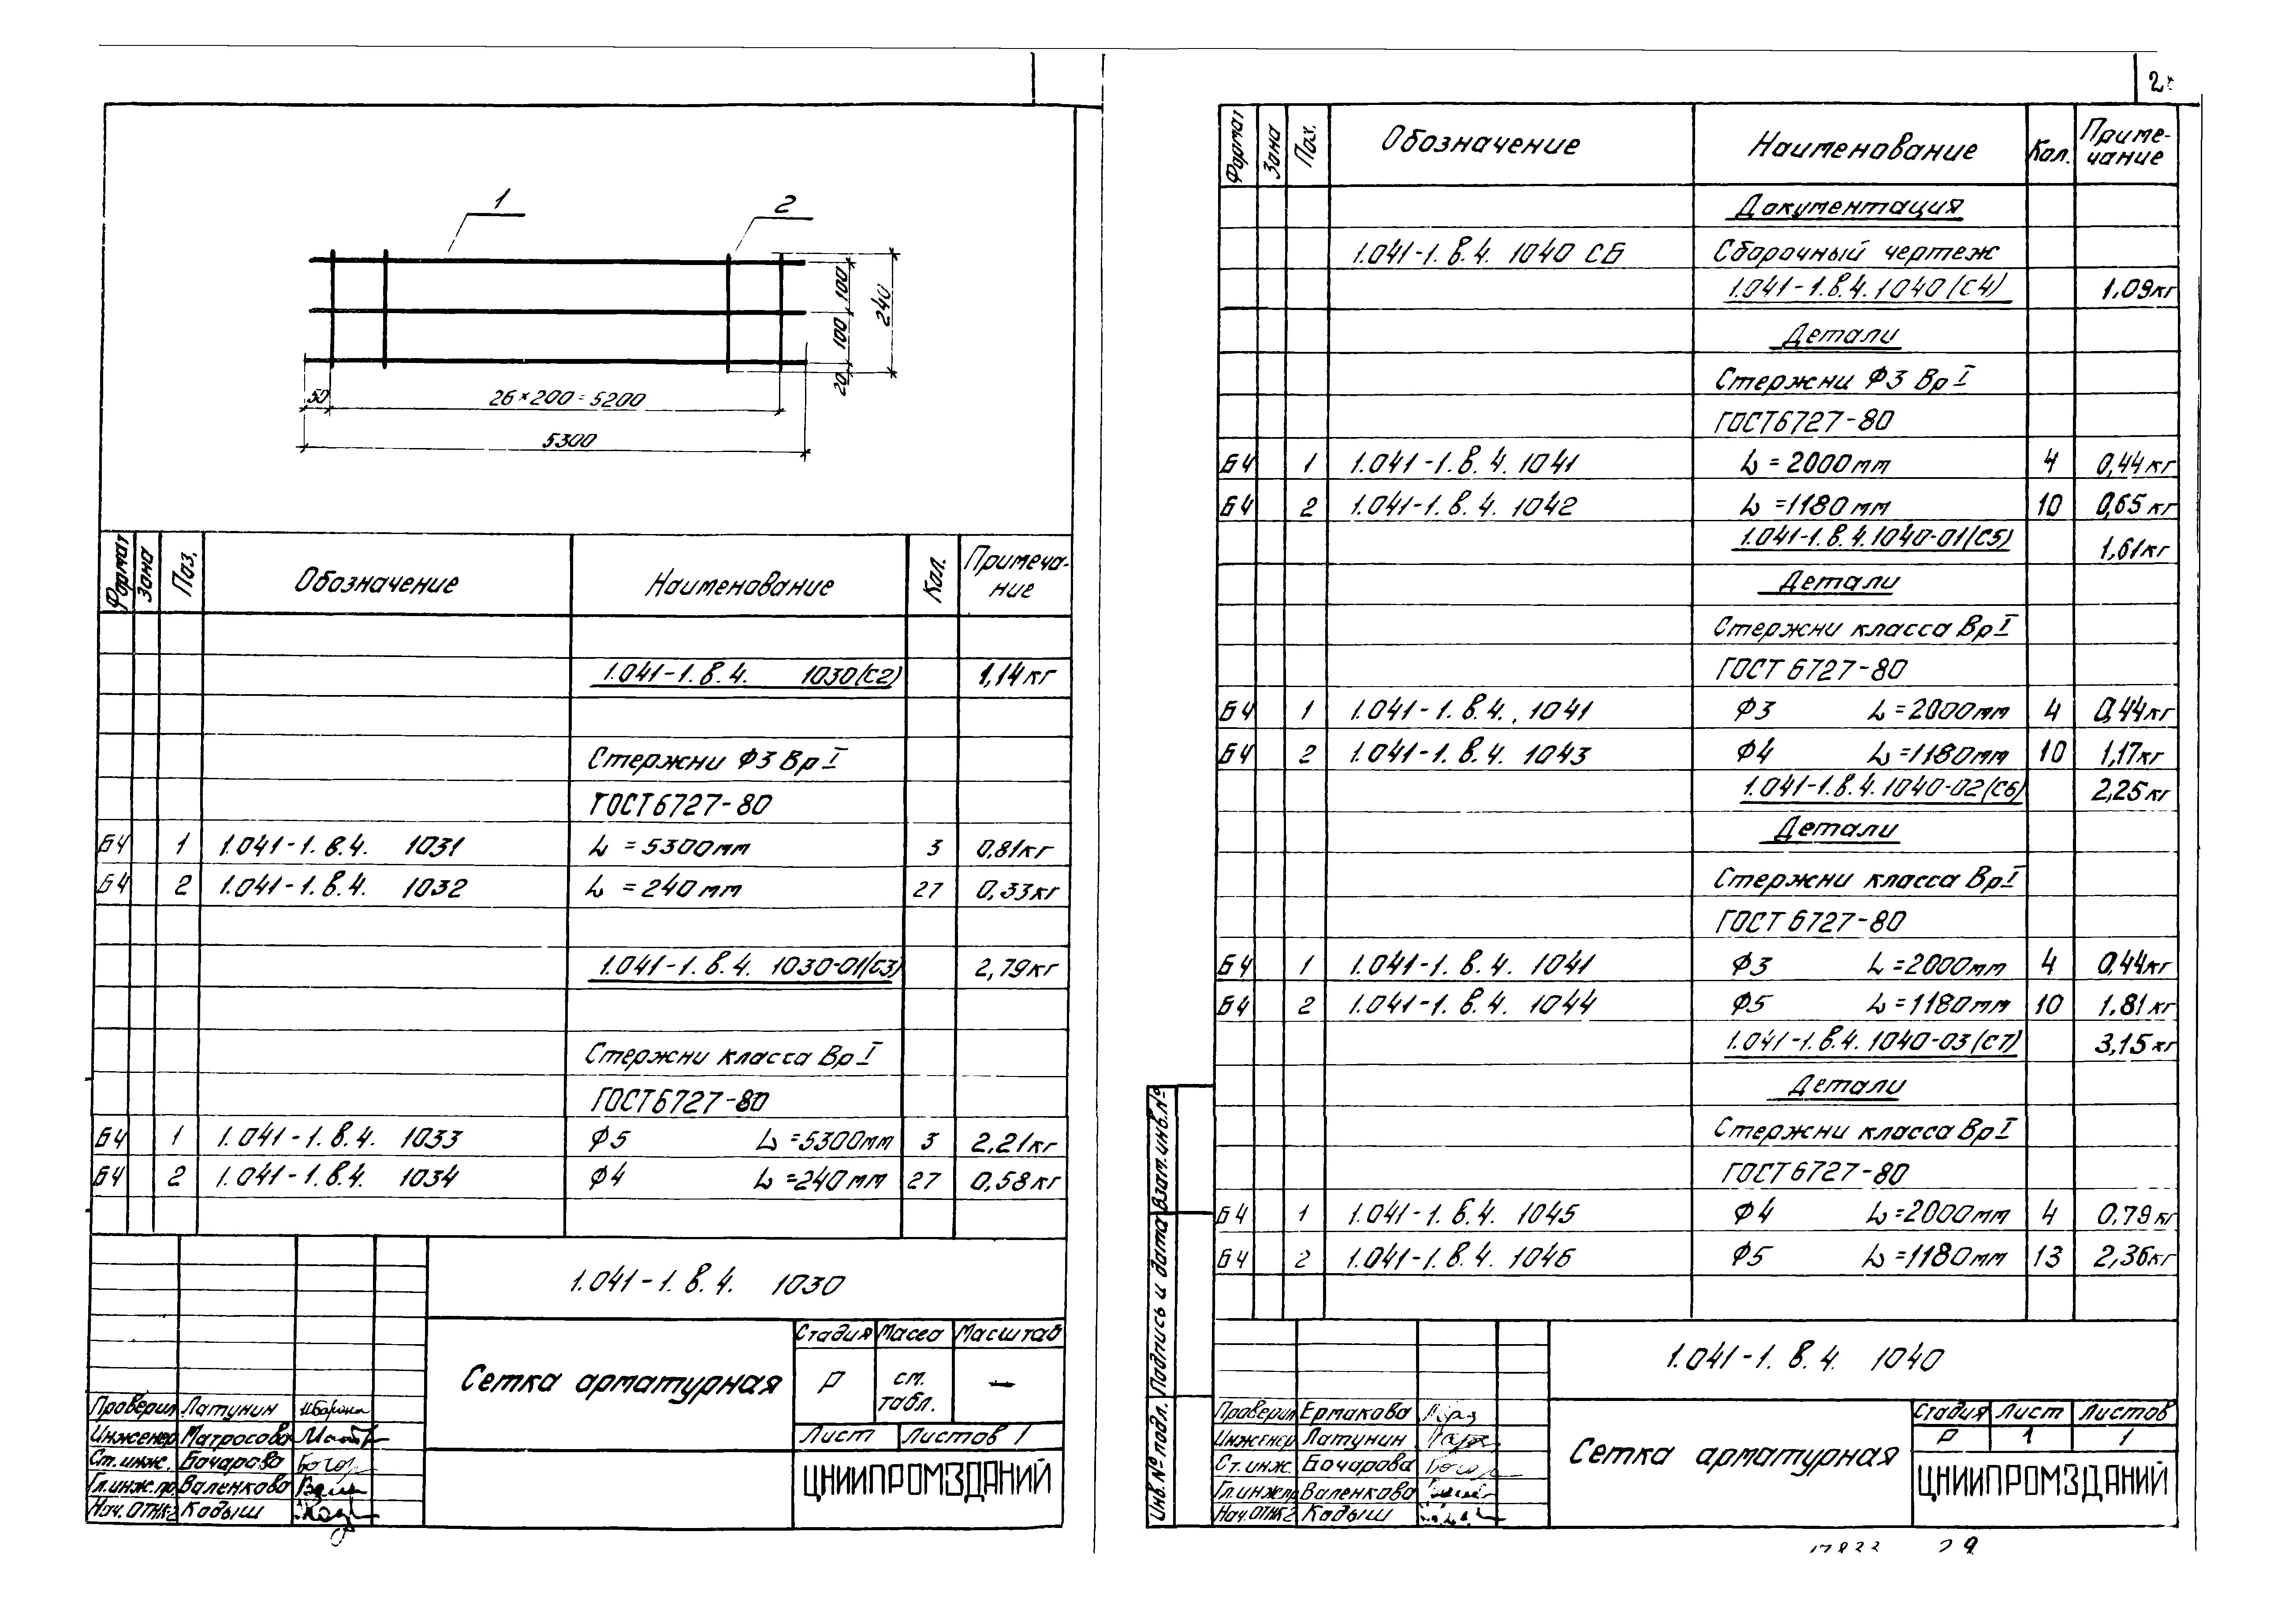 1 2
100 100 20 240
50 26×200=5200
5300
Формат Зона Поз. Обозначение Наименование Кол. Примеча-
ние
1.041-1.в.4. 1030(С2) 1,14кг
Стержни Ф3 ВрI
ГОСТ6727-80
Б4 1 1.041-1.в.4. 1031 L =5300мм 3 0,81кг
Б4 2 1.041-1.в.4. 1032 L =240мм 27 0,33кг
1.041-1.в.4. 1030-01(С3) 2,79кг
Стержни класса ВрI
ГОСТ6727-80
Б4 1 1.041-1.в.4. 1033 Ф5 L=5300мм 3 2,21кг
Б4 2 1.041-1.в.4. 1034 Ф4 L=240мм 27 0,58кг
1.041-1.в.4. 1030
Стадия Масса Масштаб
Сетка арматурная Р см.
табл. —
Лист Листов 1
ЦНИИПРОМЗДАНИЙ
Проверил Латунин
Инженер Матросова
Ст.инж. Бочарова
Гл.инж.пр. Валенкова
Нач.ОТНК2 Кадыш
Формат Зона Поз. Обозначение Наименование Кол. Приме-
чание
Документация
1.041-1.в.4. 1040 СБ Сборочный чертеж
1.041-1.в.4.1040(С4) 1,09кг
Детали
Стержни Ф3 ВрI
ГОСТ6727-80
Б4 1 1.041-1.в.4.1041 L=2000мм 4 0,44кг
Б4 2 1.041-1.в.4. 1042 L=1180мм 10 0,65кг
1.041-1.в.4.1040-01(С5) 1,61кг
Детали
Стержни класса ВрI
ГОСТ 6727-80
Б4 1 1.041-1.в.4. 1041 Ф3 L=2000мм 4 0,44кг
Б4 2 1.041-1.в.4. 1043 Ф4 L=1180мм 10 1,17кг
1.041-1.в.4.1040-02(С6) 2,25кг
Детали
Стержни класса ВрI
ГОСТ 6727-80
Б4 1 1.041-1.в.4. 1041 Ф3 L=2000мм 4 0,44кг
Б4 2 1.041-1.в.4. 1044 Ф5 L=1180мм 10 1,81кг
1.041-1.в.4. 1040-03(С7) 3,15кг
Детали
Стержни класса ВрI
ГОСТ6727-80
Б4 1 1.041-1.в.4. 1045 Ф4 L=2000мм 4 0,79кг
Б4 2 1.041-1.в.4. 1046 Ф5 L=1180мм 13 2,36кг
Инв.№ подл. Подпись и дата Взам.инв.№
1.041-1.в.4. 1040
Стадия Лист Листов
Р 1 1
Сетка арматурная
ЦНИИПРОМЗДАНИЙ
Проверил Ермакова
Инженер Латунин
Ст.инж. Бочарова
Гл.инж.пр Валенкова
Нач.ОТНК2 Кадыш